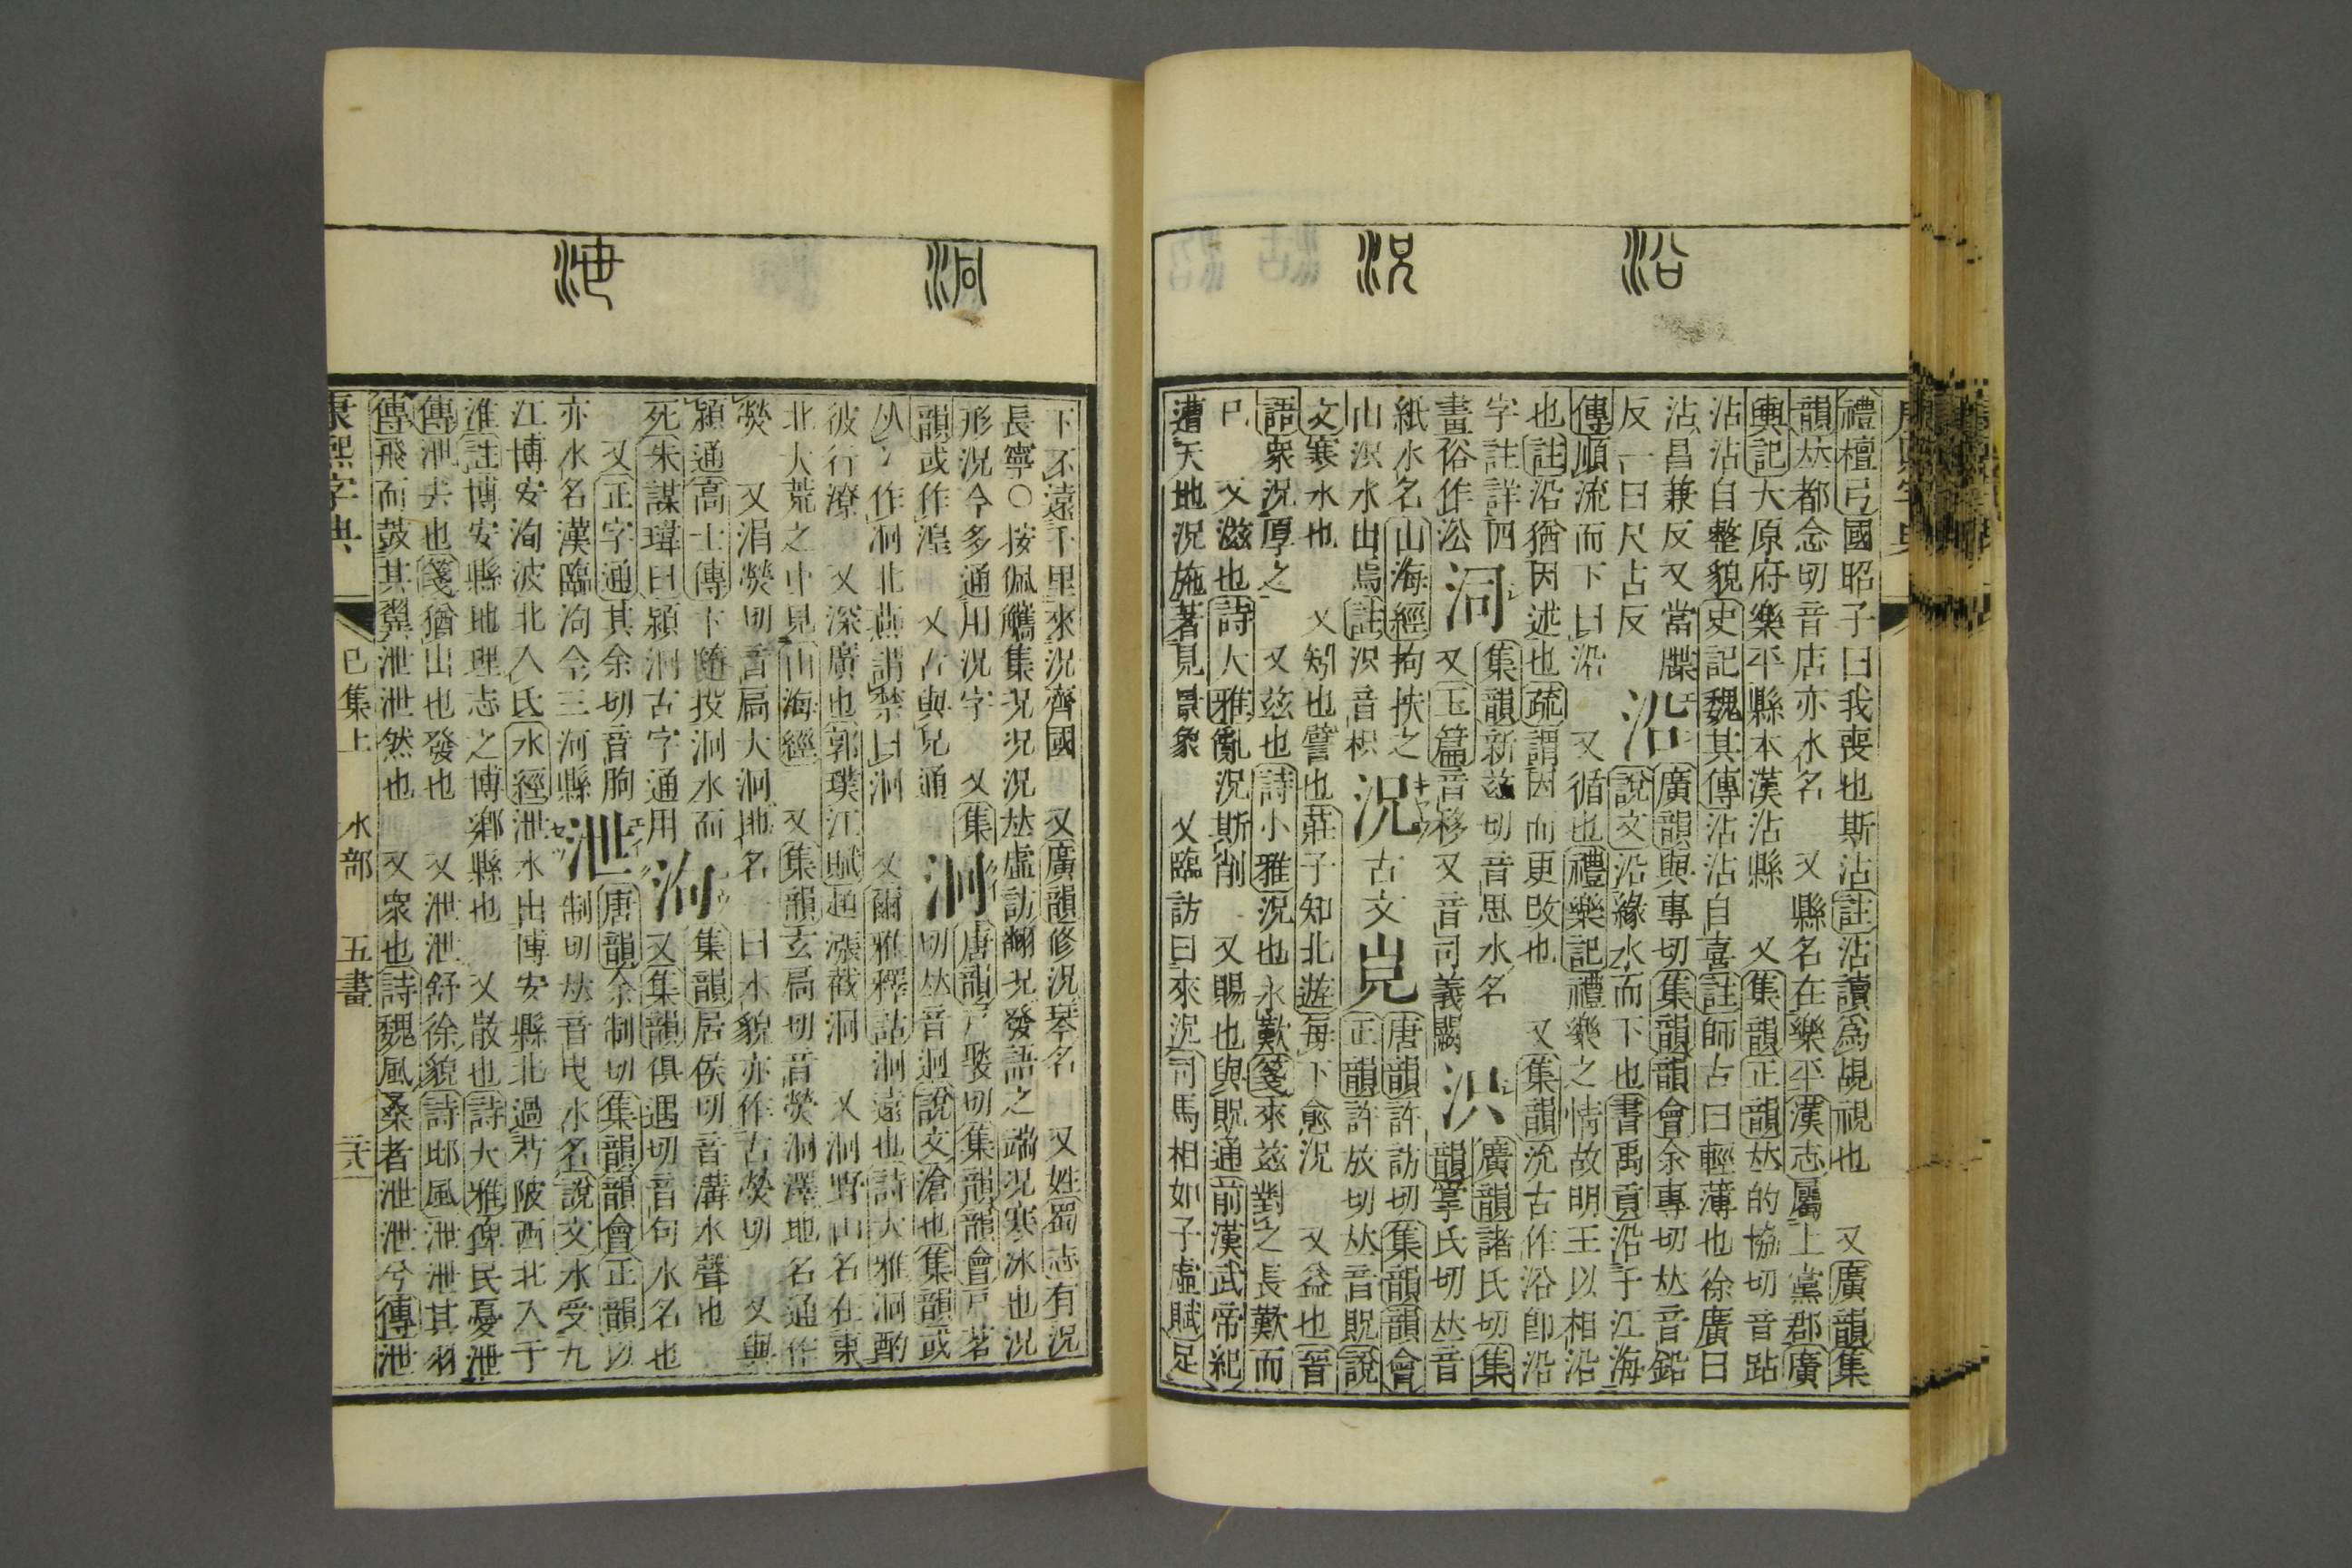 沿
況
禮檀弓國昭子曰我喪也斯沾註沾讀爲覘視也 又廣韻集
韻𠀤都念切音店亦水名 又縣名在樂平漢志屬上黨郡廣
輿記大原府樂平縣本漢沾縣 又集韻正韻𠀤的協切音跕
沾沾自整貌史記魏其傳沾沾自喜註師古曰輕薄也徐廣曰
沾昌兼反又當牒
反一曰尺占反 沿 廣韻與專切集韻韻會余專切𠀤音鉛
說文沿緣水而下也書禹貢沿于江海
傳順流而下曰沿 又循也禮樂記禮樂之情故明王以相沿
也註沿猶因述也疏謂因而更改也 又集韻沇古作沿卽沿
字註詳四
畫俗作㳂 泀 集韻新兹切音思水名
又玉篇音移又音司義闕 㳏 廣韻諸氏切集
韻掌氏切𠀤音
紙水名山海經拘扶之
山㳏水出焉註㳏音枳 況 古文 𡴆 唐韻許訪切集韻韻會
正韻許放切𠀤音貺說
文寒水也 又矧也譬也莊子知北遊每下愈況 又益也晉
語衆況厚之 又兹也詩小雅況也永歎箋來兹對之長歎而
已 又滋也詩大雅亂況斯削 又賜也與貺通前漢武帝紀
遭天地況施著見景象 又臨訪曰來況司馬相如子虛賦足
泂
泄
下不遠千里來況齊國 又廣韻修況琴名 又姓蜀志有況
長寧○按佩觿集况況况𠀤虛訪翻况發語之端況寒冰也况
形況今多通用况字 又集
韻或作湟 又古與兄通 泂 唐韻戸褧切集韻韻會戸茗
切𠀤音迥說文滄也集韻或
从冫作泂北燕謂禁曰泂 又爾雅釋詁泂遠也詩大雅泂酌
彼行潦 又深廣也郭璞江賦趙漲截泂 又泂野山名在東
北大荒之中見山海經 又集韻玄扃切音熒泂澤地名通作
熒 又涓熒切音扃大泂地名 一曰水貌亦作古熒切 又與
潁通高士傳卞隨投泂水而
死朱謀㙔曰潁泂古字通用 泃 集韻居侯切音溝水聲也
又集韻俱遇切音句水名也
又正字通其余切音朐
亦水名漢臨泃今三河縣 泄 唐韻余制切集韻韻會正韻以
制切𠀤音曳水名說文水受九
江博安洵波北入氏水經泄水出博安縣北過芍陂西北入于
淮註博安縣地理志之博鄉縣也 又散也詩大雅俾民憂泄
傳泄去也箋猶出也發也 又泄泄舒徐貌詩邶風泄泄其羽
傳飛而鼓其翼泄泄然也 又衆也詩魏風桑者泄泄兮傳泄
康熙字典 巳集上 水部 五畫